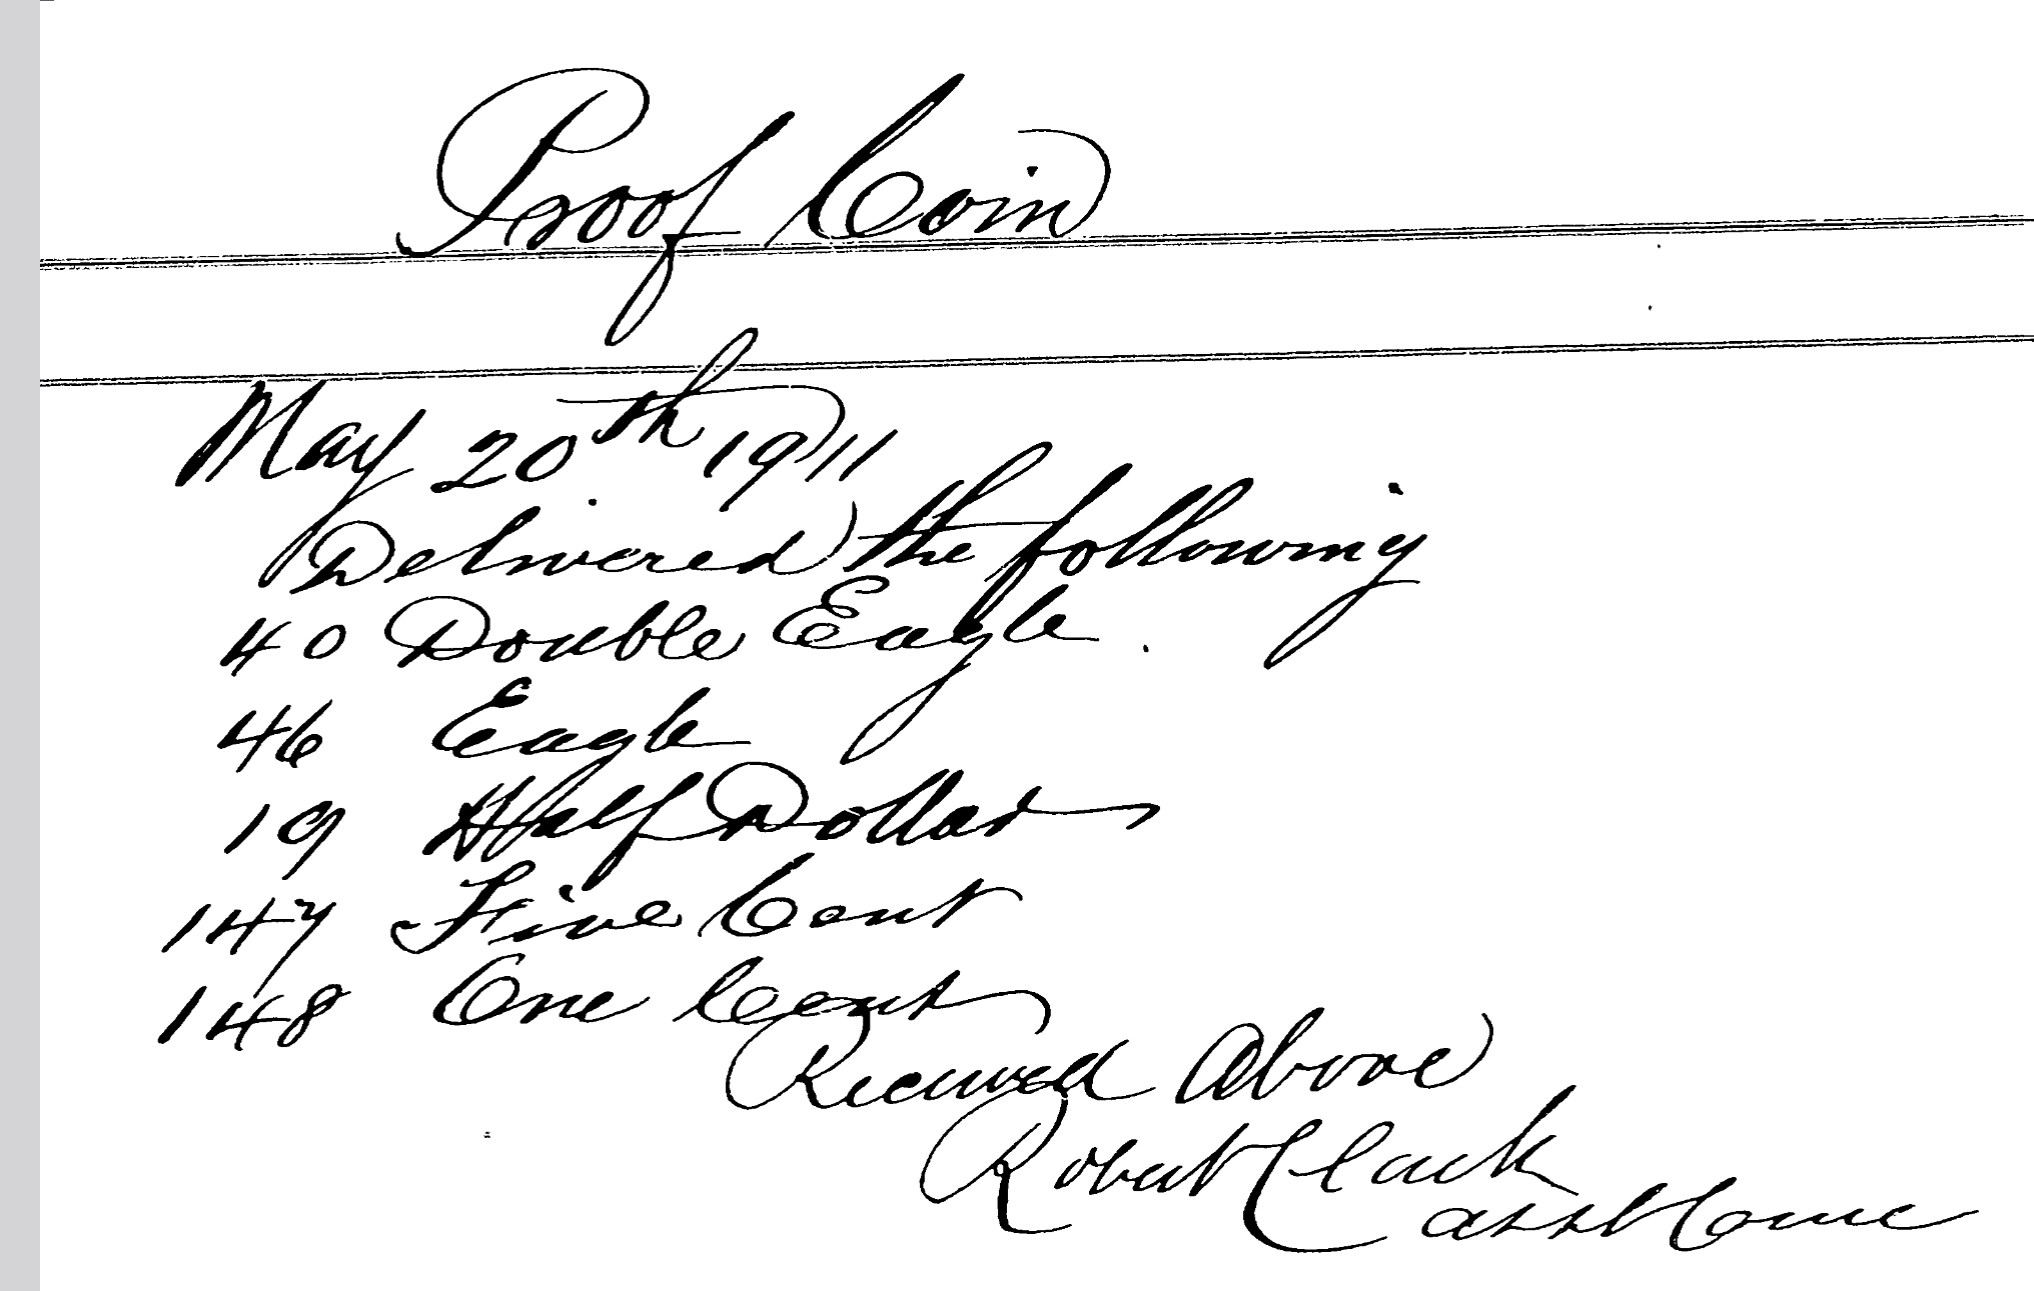 Proof Coin
May 20th 1911
Delivered the following
40 Double Eagle
46 Eagle
19 Half Dollar
147 Five Cent
148 One Cent
Received Above
Robert Clark
asst Coiner